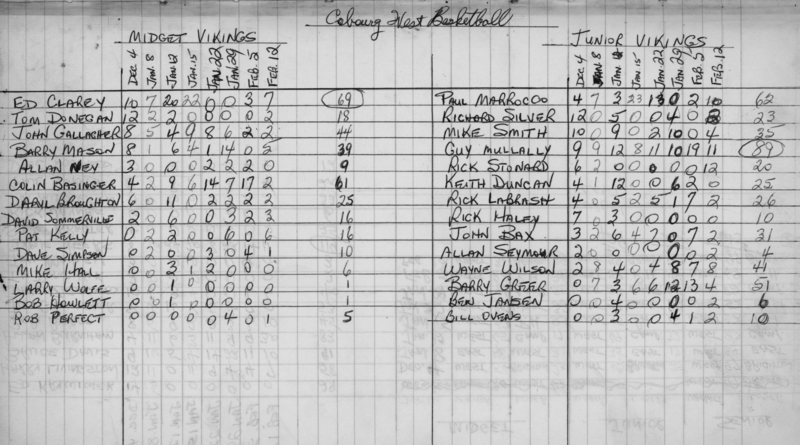 Cobourg West Basketball
MIDGET VIKINGS JUNIOR VIKINGS
DEC 4 JAN. 8 JAN. 12 JAN. 15 JAN. 22 JAN. 29 FEB. 5 FEB. 12 DEC 4 JAN. 8 JAN. JAN 15 JAN. 22 JAN. 29 FEB. 5 FEB. 12
ED CLAREY 10 7 20 22 0 0 3 7 69 PAUL MARROCOO 4 7 3 23 13 0 2 10 62
TOM DONEGAN 12 2 2 0 0 0 0 2 18 RICHARD SILVER 12 0 5 0 0 4 0 23
JOHN GALLAGHER 8 5 4 9 8 6 2 2 44 MIKE SMITH 10 0 9 0 2 10 0 4 35
BARRY MASON 8 1 6 4 1 14 0 5 39 GUY MULLALLY 9 9 12 8 11 10 19 11 89
ALLAN NEY 3 0 0 0 2 2 2 0 9 RICK STONARD 6 2 0 0 0 0 0 12 20
COLIN BASINGER 4 2 9 6 14 7 17 2 61 KEITH DUNCAN 4 1 12 0 0 6 2 0 25
DARYL BROUGHTON 6 0 11 0 2 2 2 2 25 RICK LABRASH 4 0 5 2 5 1 7 2 26
DAVID SOMMERVILLE 2 0 6 0 0 3 2 3 16 RICK HALEY 7 0 3 0 0 0 0 0 10
PAT KELLY 0 2 2 0 0 6 0 6 16 JOHN BAX 3 2 6 4 7 0 7 2 31
DAVE SIMPSON 0 2 0 0 3 0 4 1 10 ALLAN SEYMOUR 2 0 0 0 0 0 0 2 4
MIKE HALL 0 0 3 1 2 0 0 0 6 WAYNE WILSON 2 8 4 0 4 8 7 8 41
LARRY WOLFE 0 0 1 0 0 0 0 0 1 BARRY GREER 0 7 3 6 6 12 13 4 51
BOB HOWLETT 0 0 1 0 0 0 0 0 1 BEN JANSEN 0 0 4 0 0 0 0 2 6
ROB PERFECT 0 0 0 0 0 4 0 1 5 BILL OVENS 0 0 3 0 0 4 1 2 10